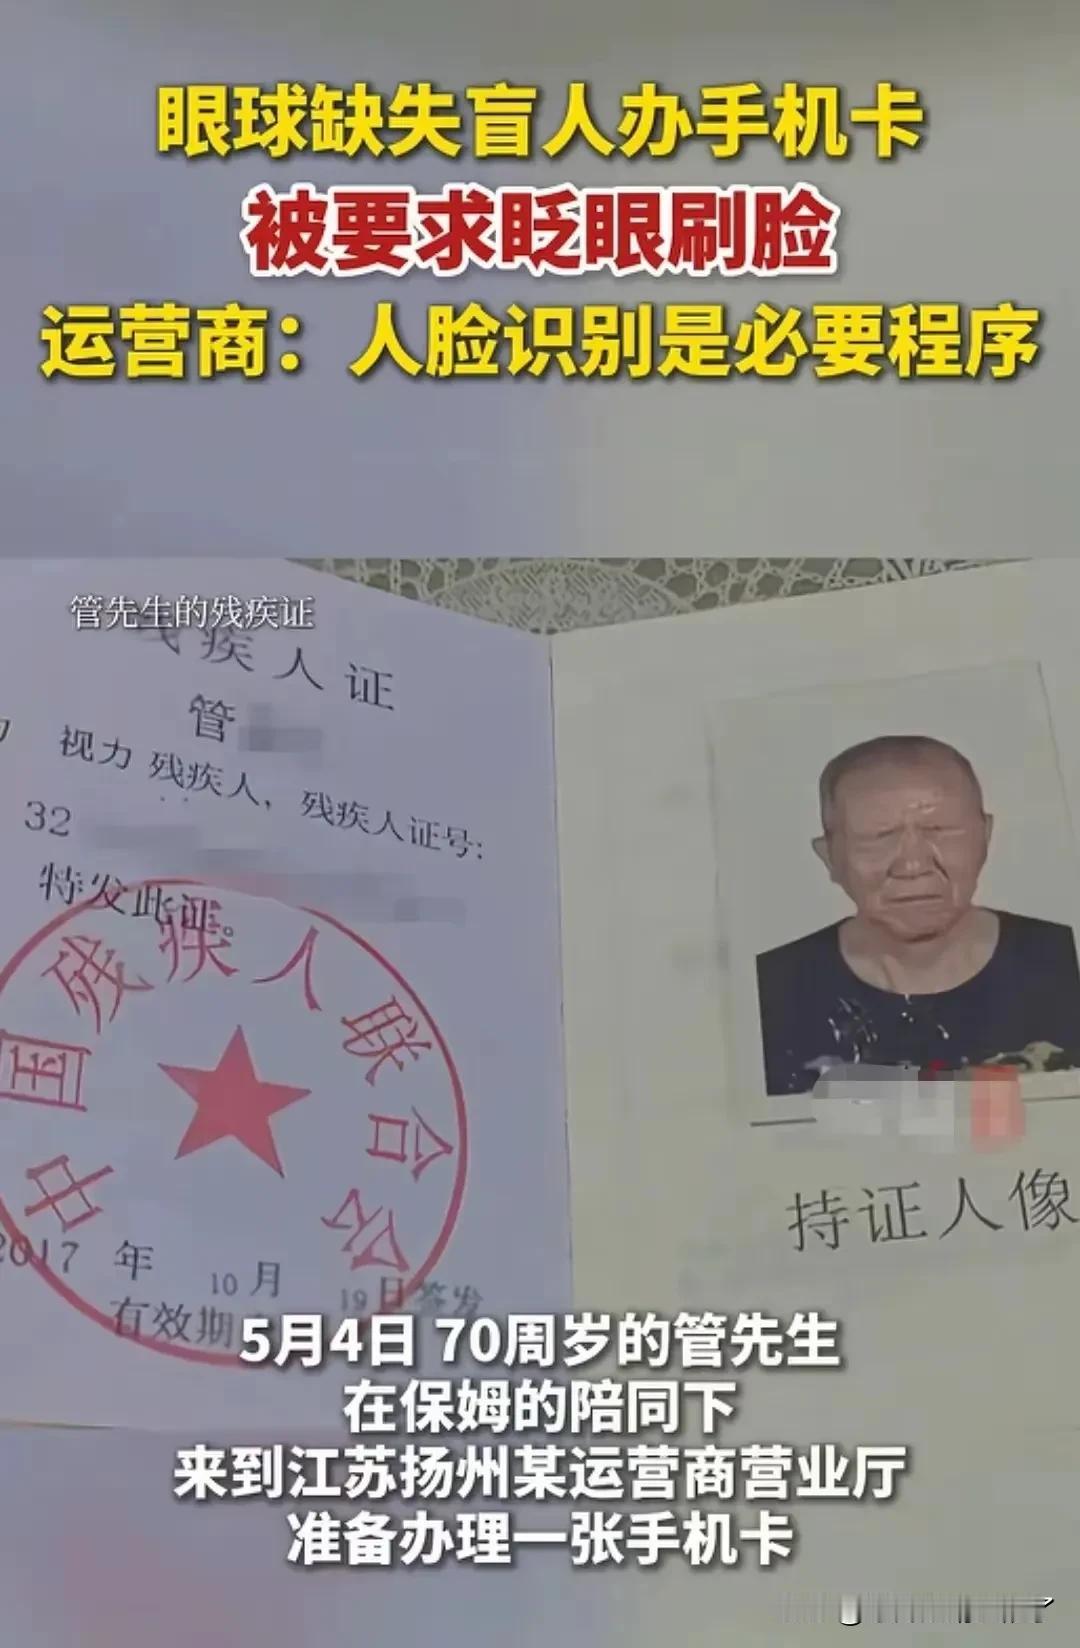 眼球缺失盲人办手机卡
被要求眨眼刷脸
运营商：人脸识别是必要程序
管先生的残疾证
残疾人证
管
视力 残疾人，残疾人证号：
32
特发此证。
中国残疾人联合会
2017 年 10 月 19日签发
有效期
持证人像
5月4日 70周岁的管先生
在保姆的陪同下
来到江苏扬州某运营商营业厅
准备办理一张手机卡